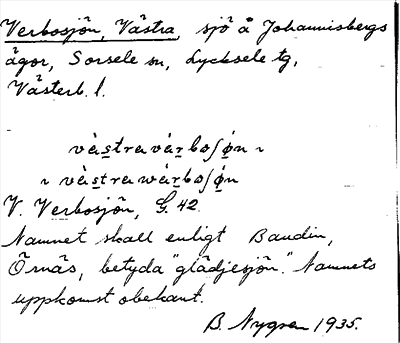 Verbosjön, Västra, sjö å Johannisbergs
ägor, Sorsele sn, Lycksele tg,
Västerb. l.
västravärboʃøn
västrawärboʃøn
V. Verbosjön, G. 42.
Namnet skall enligt Baudin,
Örnäs, betyda "glädjesjön." Namnets
uppkomst obekant.
B. Nygren 1935.